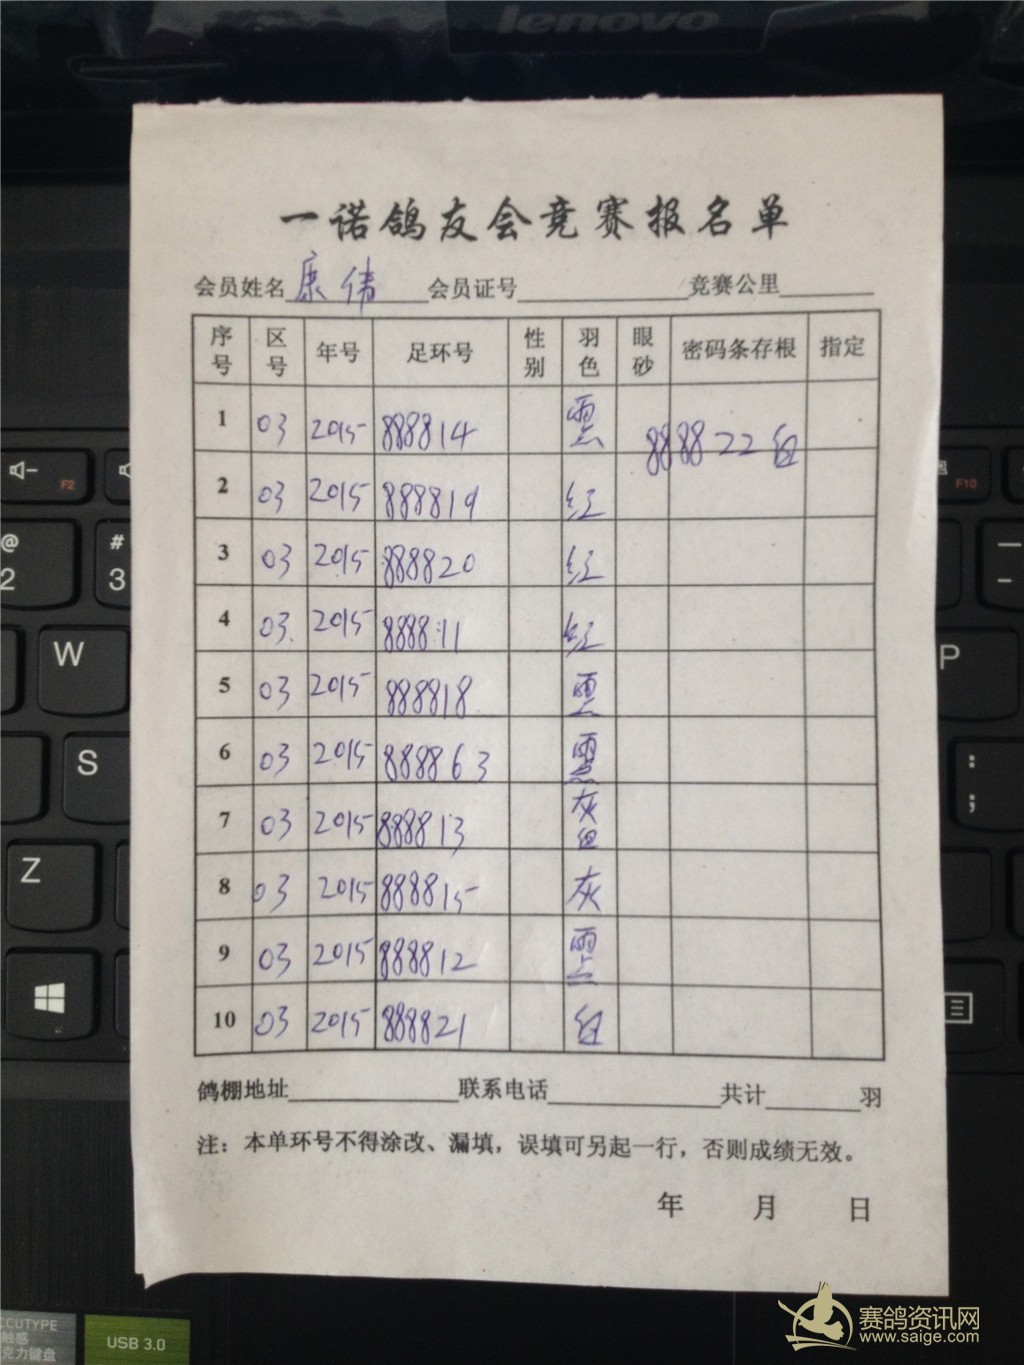 lenovo
一诺鸽友会竞赛报名单
会员姓名 康伟 会员证号 竞赛公里
序号 区号 年号 足环号 性别 羽色 眼砂 密码条存根 指定
1 03 2015 888814
888822 红
2 03 2015 888819 红
3 03 2015 888820 红
4 03 2015 888811 红
5 03 2015 888818
6 03 2015 888863
7 03 2015 888813 灰
8 03 2015 888815 灰
9 03 2015 888812
10 03 2015 888821 红
鸽棚地址 联系电话 共计 羽
注：本单环号不得涂改、漏填，误填可另起一行，否则成绩无效。
年 月 日
F2
F10
@
2
#
3
W
P
S
:
;
Z
CCUTYPE
触感
克力键盘
USB 3.0
赛鸽资讯网
www.saige.com